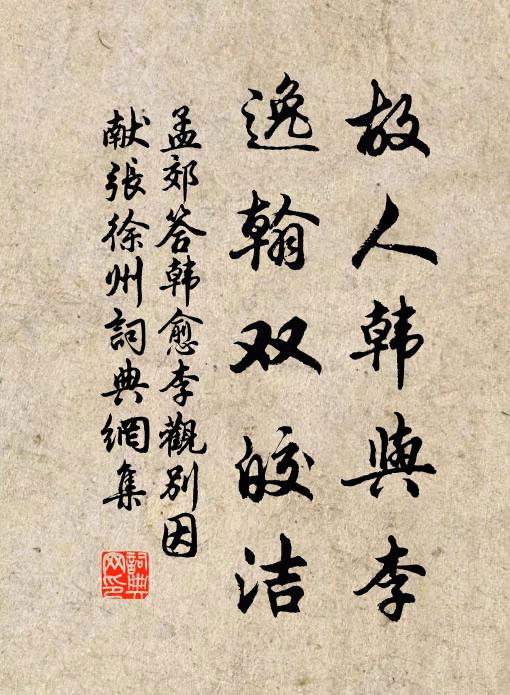 故人韩與李
逸翰双皎洁
孟郊答韩愈李觀別因
献張徐州詞典網集
詞典
网印